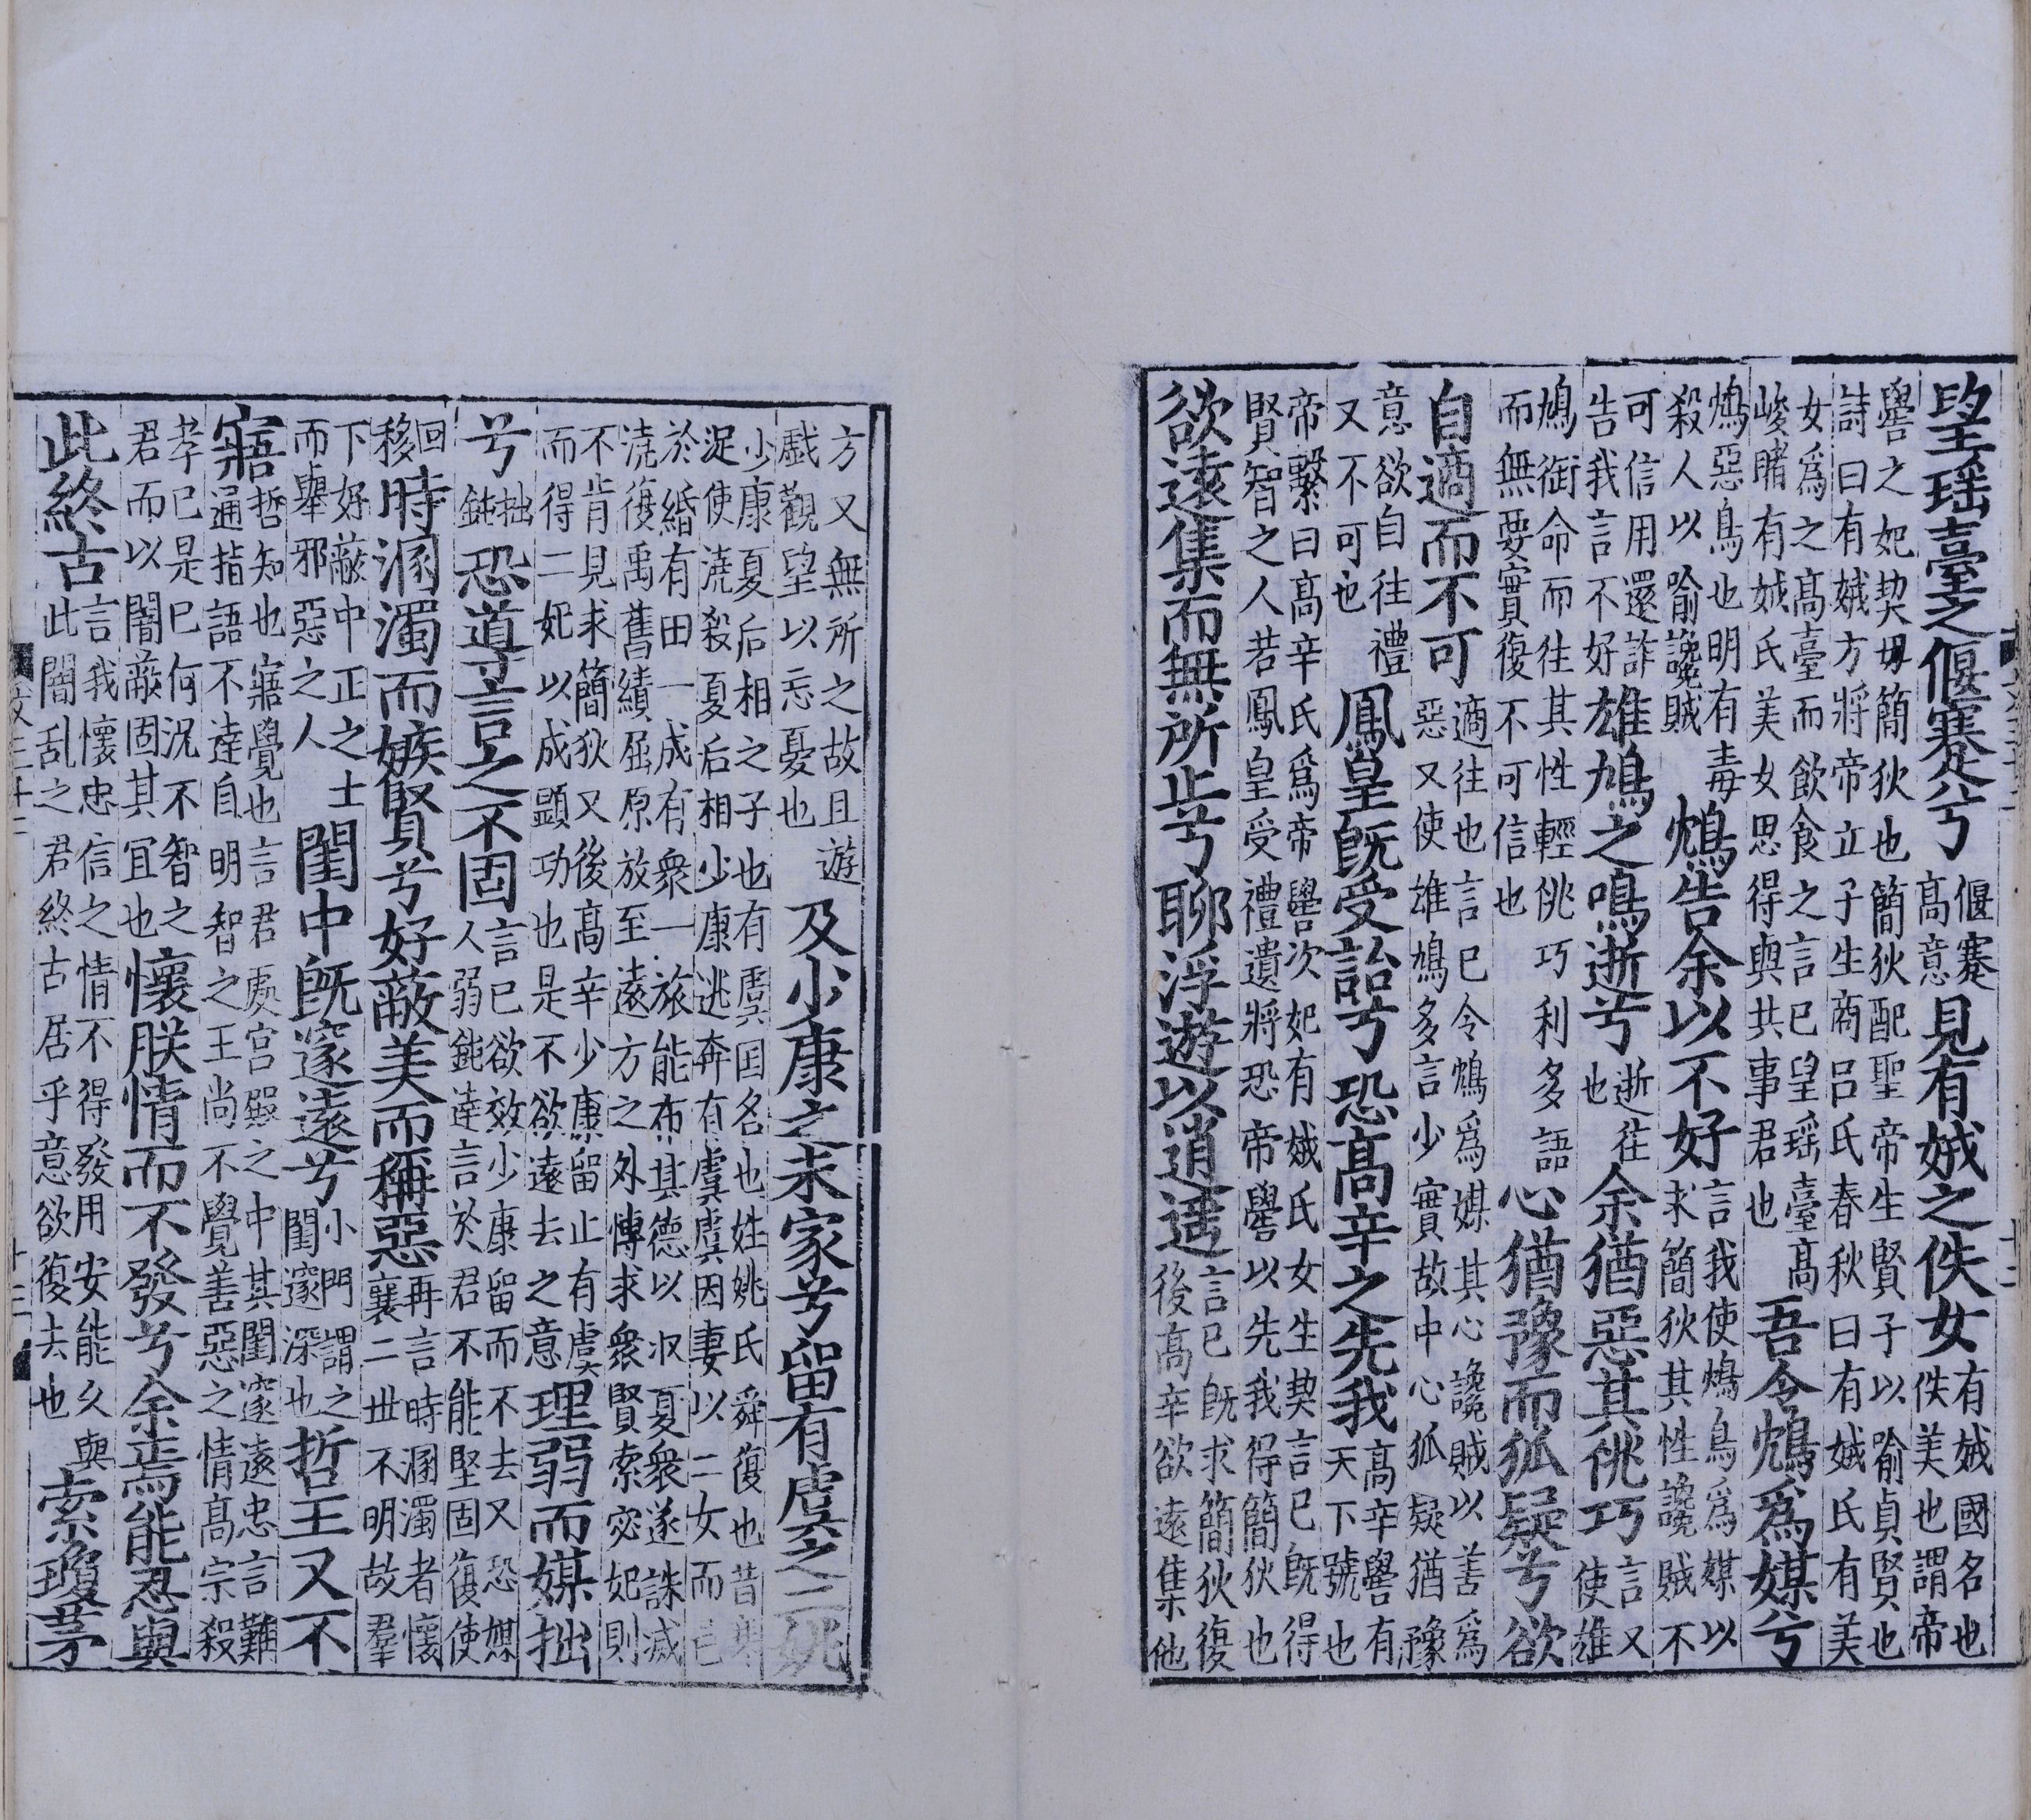 望瑶臺之偃蹇兮偃蹇高意見有娀之佚女有娀國名也佚美也謂帝
嚳之妃契毋簡狄也簡狄配聖帝生賢子以喻貞賢也詩曰有娀方將帝立子生商吕氏春秋曰有娀氏有美
女爲之高臺而飲食之言已望瑶臺高峻睹有娀氏美女思得與共事君也吾令鴆爲媒兮
鴆惡鳥也明有毒殺人以喻讒賊鴆告余以不好言我使鴆鳥爲媒以求簡狄其性讒賊不
可信用還詐告我言不好雄鳩之鳴逝兮逝往也余猶惡其佻巧言又使雄
鳩銜命而往其性輕佻巧利多語而無要實復不可信也心猶豫而狐疑兮欲
自適而不可適往也言已令鴆爲媒其心讒賊以善爲惡又使雄鳩多言少實故中心狐疑猶豫
意欲自往禮又不可也鳳皇既受詒兮恐高辛之先我高辛嚳有天下號也
帝繫曰高辛氏爲帝嚳次妃有娀氏女生契言已既得賢智之人若鳳皇受禮遺將恐帝嚳以先我得簡狄也
欲遠集而無所止兮聊浮遊以逍遥言已既求簡狄復後高辛欲遠集他
方又無所之故且遊戲觀望以忘憂也及少康之未家兮留有虞之二姚
少康夏后相之子也有虞囯名也姓姚氏舜復也昔寒浞使澆殺夏后相少康逃奔有虞虞因妻以二女而邑
於緡有田一成有衆一旅能布其德以収夏衆遂誅滅澆復禹舊績屈原放至遠方之外愽求衆賢索宓妃則
不肯見求簡狄又後高辛少康留止有虞而得二妃以成顕功也是不欲遠去之意理弱而媒拙
兮拙鈍恐導言之不固言已欲效少康留而不去又恐媒人弱鈍達言於君不能堅固復使
回移時溷濁而嫉賢兮好蔽美而稱惡再言時溷濁者懷襄二世不明故羣
下好蔽中正之士而舉邪惡之人閨中既邃遠兮小門謂之閨邃深也哲王又不
寤哲知也寤覺也言君處宫殿之中其閨邃遠忠言難通指語不達自明智之王尚不覺善惡之情高宗殺
孝已是已何況不智之君而以闇蔽固其宜也懷朕情而不發兮余焉能忍與
此終古言我懷忠信之情不得發用安能久與此闇乱之君終古居乎意欲復去也索瓊茅